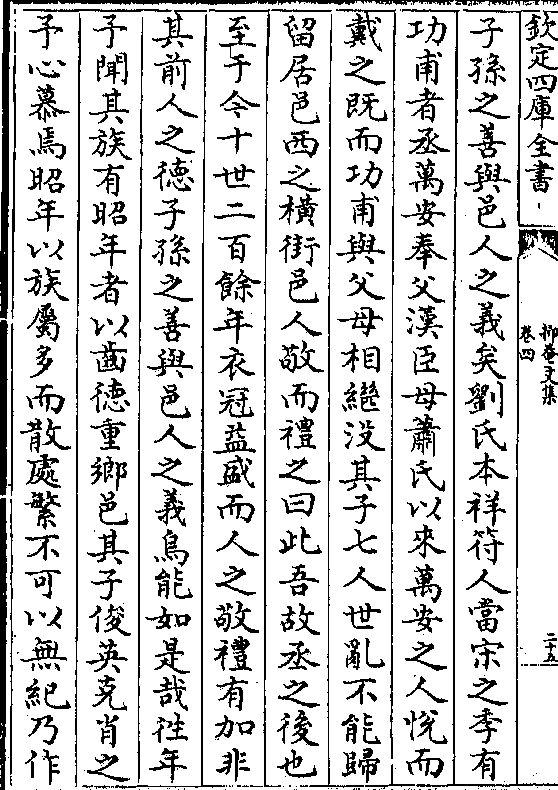 欽定四庫全書
抑菴文集
卷四
二十五
子孫之善與邑人之義矣劉氏本祥符人當宋之季有
功甫者丞萬安奉父漢臣母蕭氏以來萬安之人悅而
戴之既而功甫與父母相繼没其子七人世亂不能歸
留居邑西之橫街邑人敬而禮之曰此吾故丞之後也
至于今十世二百餘年衣冠益盛而人之敬禮有加非
其前人之德子孫之善與邑人之義烏能如是哉徃年
予聞其族有昭年者以齒德重鄉邑其子俊英克肖之
予心慕焉昭年以族屬多而散處繁不可以無紀乃作